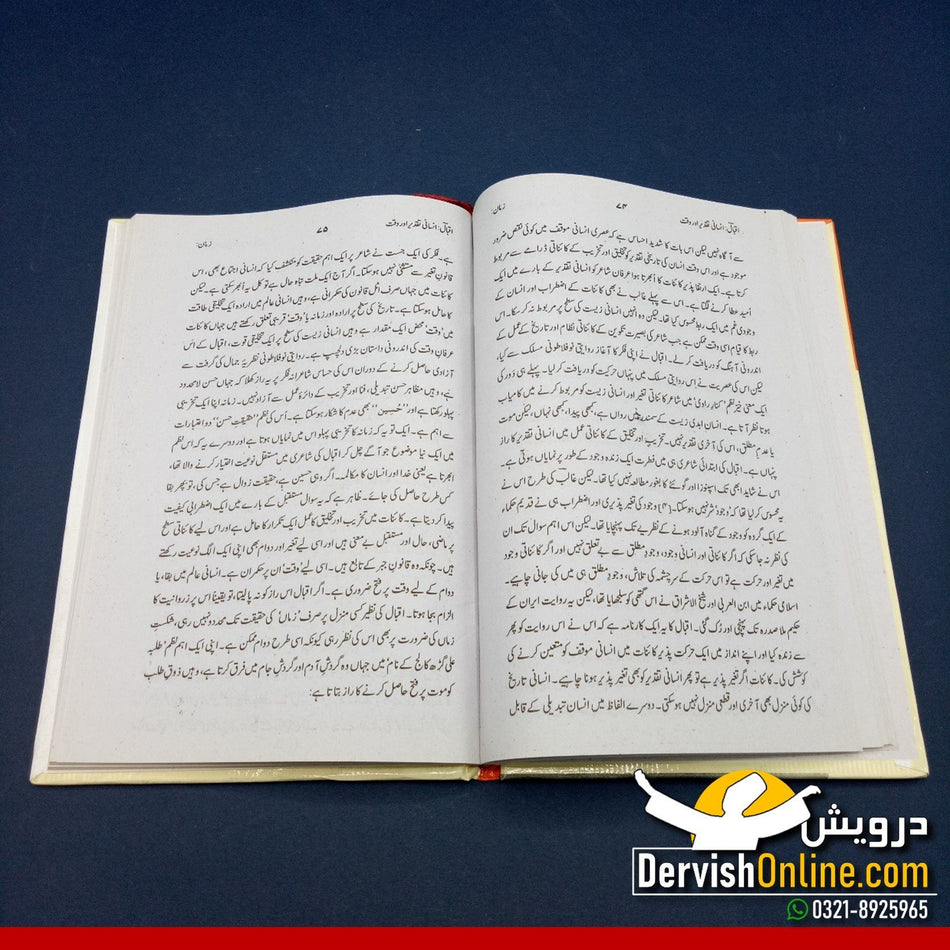 زمان:
۷۴
اقبال: انسانی تقدیر اور وقت
سے آگاہ نہیں لیکن اس بات کا شدید احساس ہے کہ عصری انسانی موقف میں کوئی نقص ضرور
موجود ہے اور اس وقت انسان کی تاریخی تقدیر کو تخلیق اور تخریب کے کائناتی ڈرامے سے مربوط
کرتا ہے۔ ایک ارتقا پذیر کائنات کا اُبھرتا ہوا عرفان شاعر کو انسانی تقدیر کے بارے میں ایک
اُمید عطا کرنے لگتا ہے۔ اس سے پہلے غالب نے بھی کائنات کے اضطراب اور انسان کے
وجودی غم میں ایک ربط محسوس کیا تھا۔ لیکن وہ انہیں انسانی زیست کی سطح پر مربوط نہ کر سکا۔ اس
ربط کا قیام اسی وقت ممکن ہے جب شاعر کی بصیرت تکوین کے کائناتی نظام اور تاریخ کے عمل کے
اندرونی آہنگ کو دریافت کر لے۔ اقبال نے اپنی فکر کا آغاز روایتی نوفلاطونی مسلک سے کیا،
لیکن اس کی عصریت نے اس روایتی مسلک میں پنہاں حرکیت کو دریافت کر لیا۔ پہلے ہی دَور کی
ایک معنی خیز نظم ’کنارِ راوی‘ میں شاعر کائناتی تغیر اور انسانی زیست کو مربوط کرنے میں کامیاب
ہوتا نظر آتا ہے۔ انسان ابدی زیست کے سمندر میں رواں ہے، کبھی پیدا، کبھی نہاں، لیکن موت
یا عدمِ مطلق، اس کی آخری تقدیر نہیں۔ تخریب اور تخلیق کے کائناتی عمل میں انسانی تقدیر کا راز
پنہاں ہے۔ اقبال کی ابتدائی شاعری ہی میں فطرت ایک زندہ وجود کے طور پر نمایاں ہوتی ہے۔
اس نے شاید ابھی تک اسپنوزا اور گوئٹے کا بغور مطالعہ نہیں کیا تھا۔ لیکن غالب کی طرح اس نے
یہ محسوس کر لیا تھا کہ ’وجود‘ شر نہیں ہو سکتا۔ (۴) وجود کی تغیر پذیری اور اضطراب ہی نے قدیم حکماء
کے ایک گروہ کو وجود کے گناہ آلود ہونے کے نظریے تک پہنچایا تھا۔ لیکن اس اہم سوال تک ان
کی نظر نہ جا سکی کہ اگر کائناتی اور انسانی وجود، وجودِ مطلق سے بے تعلق نہیں اور اگر کائناتی وجود
میں تغیر اور حرکت ہے تو اس حرکت کے سرچشمہ کی تلاش، وجودِ مطلق ہی میں کی جانی چاہیے۔
اسلامی حکماء میں ابن العربی اور شیخ الاشراق نے اس گتھی کو سلجھایا تھا، لیکن یہ روایت ایران کے
حکیم ملا صدرہ تک پہنچی اور رُک گئی۔ اقبال کا یہ ایک کارنامہ ہے کہ اس نے اس روایت کو پھر
سے زندہ کیا اور اپنے انداز میں ایک حرکت پذیر کائنات میں انسانی موقف کو متعین کرنے کی
کوشش کی۔ کائنات اگر تغیر پذیر ہے تو پھر انسانی تقدیر کو بھی تغیر پذیر ہونا چاہیے۔ انسانی تاریخ
کی کوئی منزل بھی آخری اور قطعی منزل نہیں ہو سکتی۔ دوسرے الفاظ میں انسان تبدیلی کے قابل
زمان:
۷۵
اقبال: انسانی تقدیر اور وقت
ہے۔ فکر کی ایک جست نے شاعر پر ایک اہم حقیقت کو منکشف کیا کہ انسانی اجتماع بھی، اس
قانونِ تغیر سے مستثنیٰ نہیں ہو سکتا۔ اگر آج ایک ملت تباہ حال ہے تو کل یہ اُبھر سکتی ہے۔ لیکن
کائنات میں جہاں صرف اٹل قانون کی حکمرانی ہے، وہیں انسانی عالم میں ارادہ ایک تخلیقی طاقت
کا حامل ہو سکتا ہے۔ تاریخ کی سطح پر ارادہ اور زمانہ یا ’وقت‘ قریبی تعلق رکھتے ہیں جہاں کائنات
میں ’وقت‘ محض ایک مقدار ہے وہیں انسانی زیست کی سطح پر ایک تخلیقی قوت، اقبال کے اس
عرفانِ وقت کی اندرونی داستان بڑی دلچسپ ہے۔ روایتی نوفلاطونی نظریۂ جمال کی گرفت سے
آزادی حاصل کرنے کے دوران اس کی حساس شاعرانہ فکر پر یہ راز کھلا کہ جہاں حسن لامحدود
ہے، وہیں مظاہرِ حسن تبدیلی، فنا اور تخریب کے دائرۂ عمل سے آزاد نہیں۔ زمانہ اپنا ایک تخریبی
پہلو رکھتا ہے اور ’’حُسین‘‘ بھی عدم کا شکار ہو سکتا ہے۔ اُس کی نظم ’’حقیقتِ حسن‘‘ دو اعتبارات
سے اہم ہے۔ ایک تو یہ کہ زمانہ کا تخریبی پہلو اس میں نمایاں ہوتا ہے اور دوسرے یہ کہ اس نظم
میں ایک نیا موضوع جو آگے چل کر اقبال کی شاعری میں مستقل نوعیت اختیار کرنے والا تھا،
اُبھرتا ہے یعنی خدا اور انسان کا مکالمہ۔ اگر وہی حسین ہے، حقیقت زوال ہے جس کی، تو پھر بقا
کس طرح حاصل کی جائے۔ ظاہر ہے کہ یہ سوال مستقبل کے بارے میں ایک اضطرابی کیفیت
پیدا کر دیتا ہے۔ کائنات میں تخریب اور تخلیق کا عمل ایک تکرار کا حامل ہے اور اس لیے کائناتی سطح
پر ماضی، حال اور مستقبل بے معنی ہیں اور اسی لیے تغیر اور دوام بھی اپنی ایک الگ نوعیت رکھتے
ہیں۔ چونکہ وہ قانونِ جبر کے تابع ہیں۔ اسی لیے ’وقت‘ ان پر حکمران ہے۔ انسانی عالم میں بقا، یا
دوام کے لیے وقت پر فتح ضروری ہے۔ اگر اقبال اس راز کو نہ پا لیتا، تو یقیناً اس پر زروانیت کا
الزام بجا ہوتا۔ اقبال کی نظیر کسی منزل پر صرف ’زماں‘ کی حقیقت تک محدود نہیں رہی، شکستِ
زماں کی ضرورت پر بھی اس کی نظر رہی کیونکہ اسی طرح دوام ممکن ہے۔ اپنی ایک اہم نظم ’طلبہ
علی گڑھ کالج کے نام‘ میں جہاں وہ گردشِ آدم اور گردشِ جام میں فرق کرتا ہے، وہیں ذوقِ طلب
کو موت پر فتح حاصل کرنے کا راز بتاتا ہے:
درویش
DervishOnline.com
0321-8925965